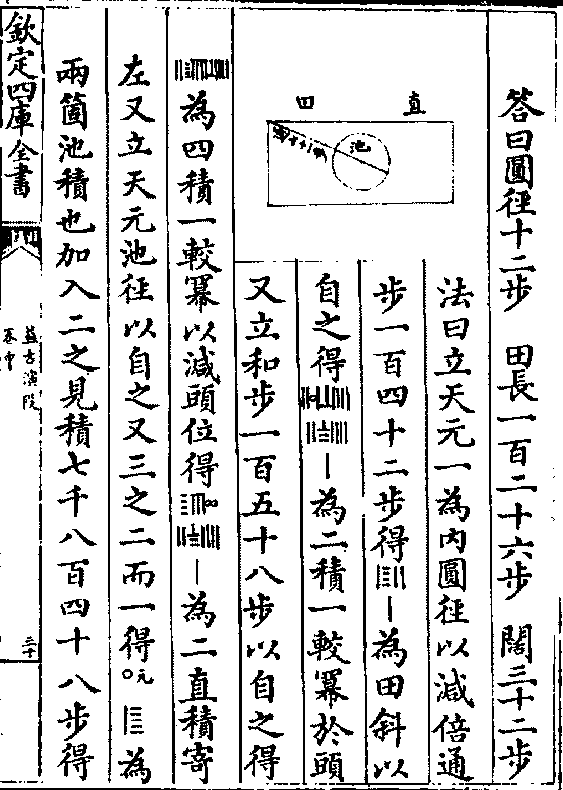 答曰圓徑十二步　田長一百二十六步　闊三十二步
直田
池
法曰立天元一為内圓徑以減倍通
步一百四十二步得 為田斜以
自之得 為二積一較冪於頭
又立和步一百五十八步以自之得
為四積一較冪以減頭位得 為二直積寄
左又立天元池徑以自之又三之二而一得 元 為
兩箇池積也加入二之見積七千八百四十八步得
欽定四庫全書
益古演段
卷中
三十